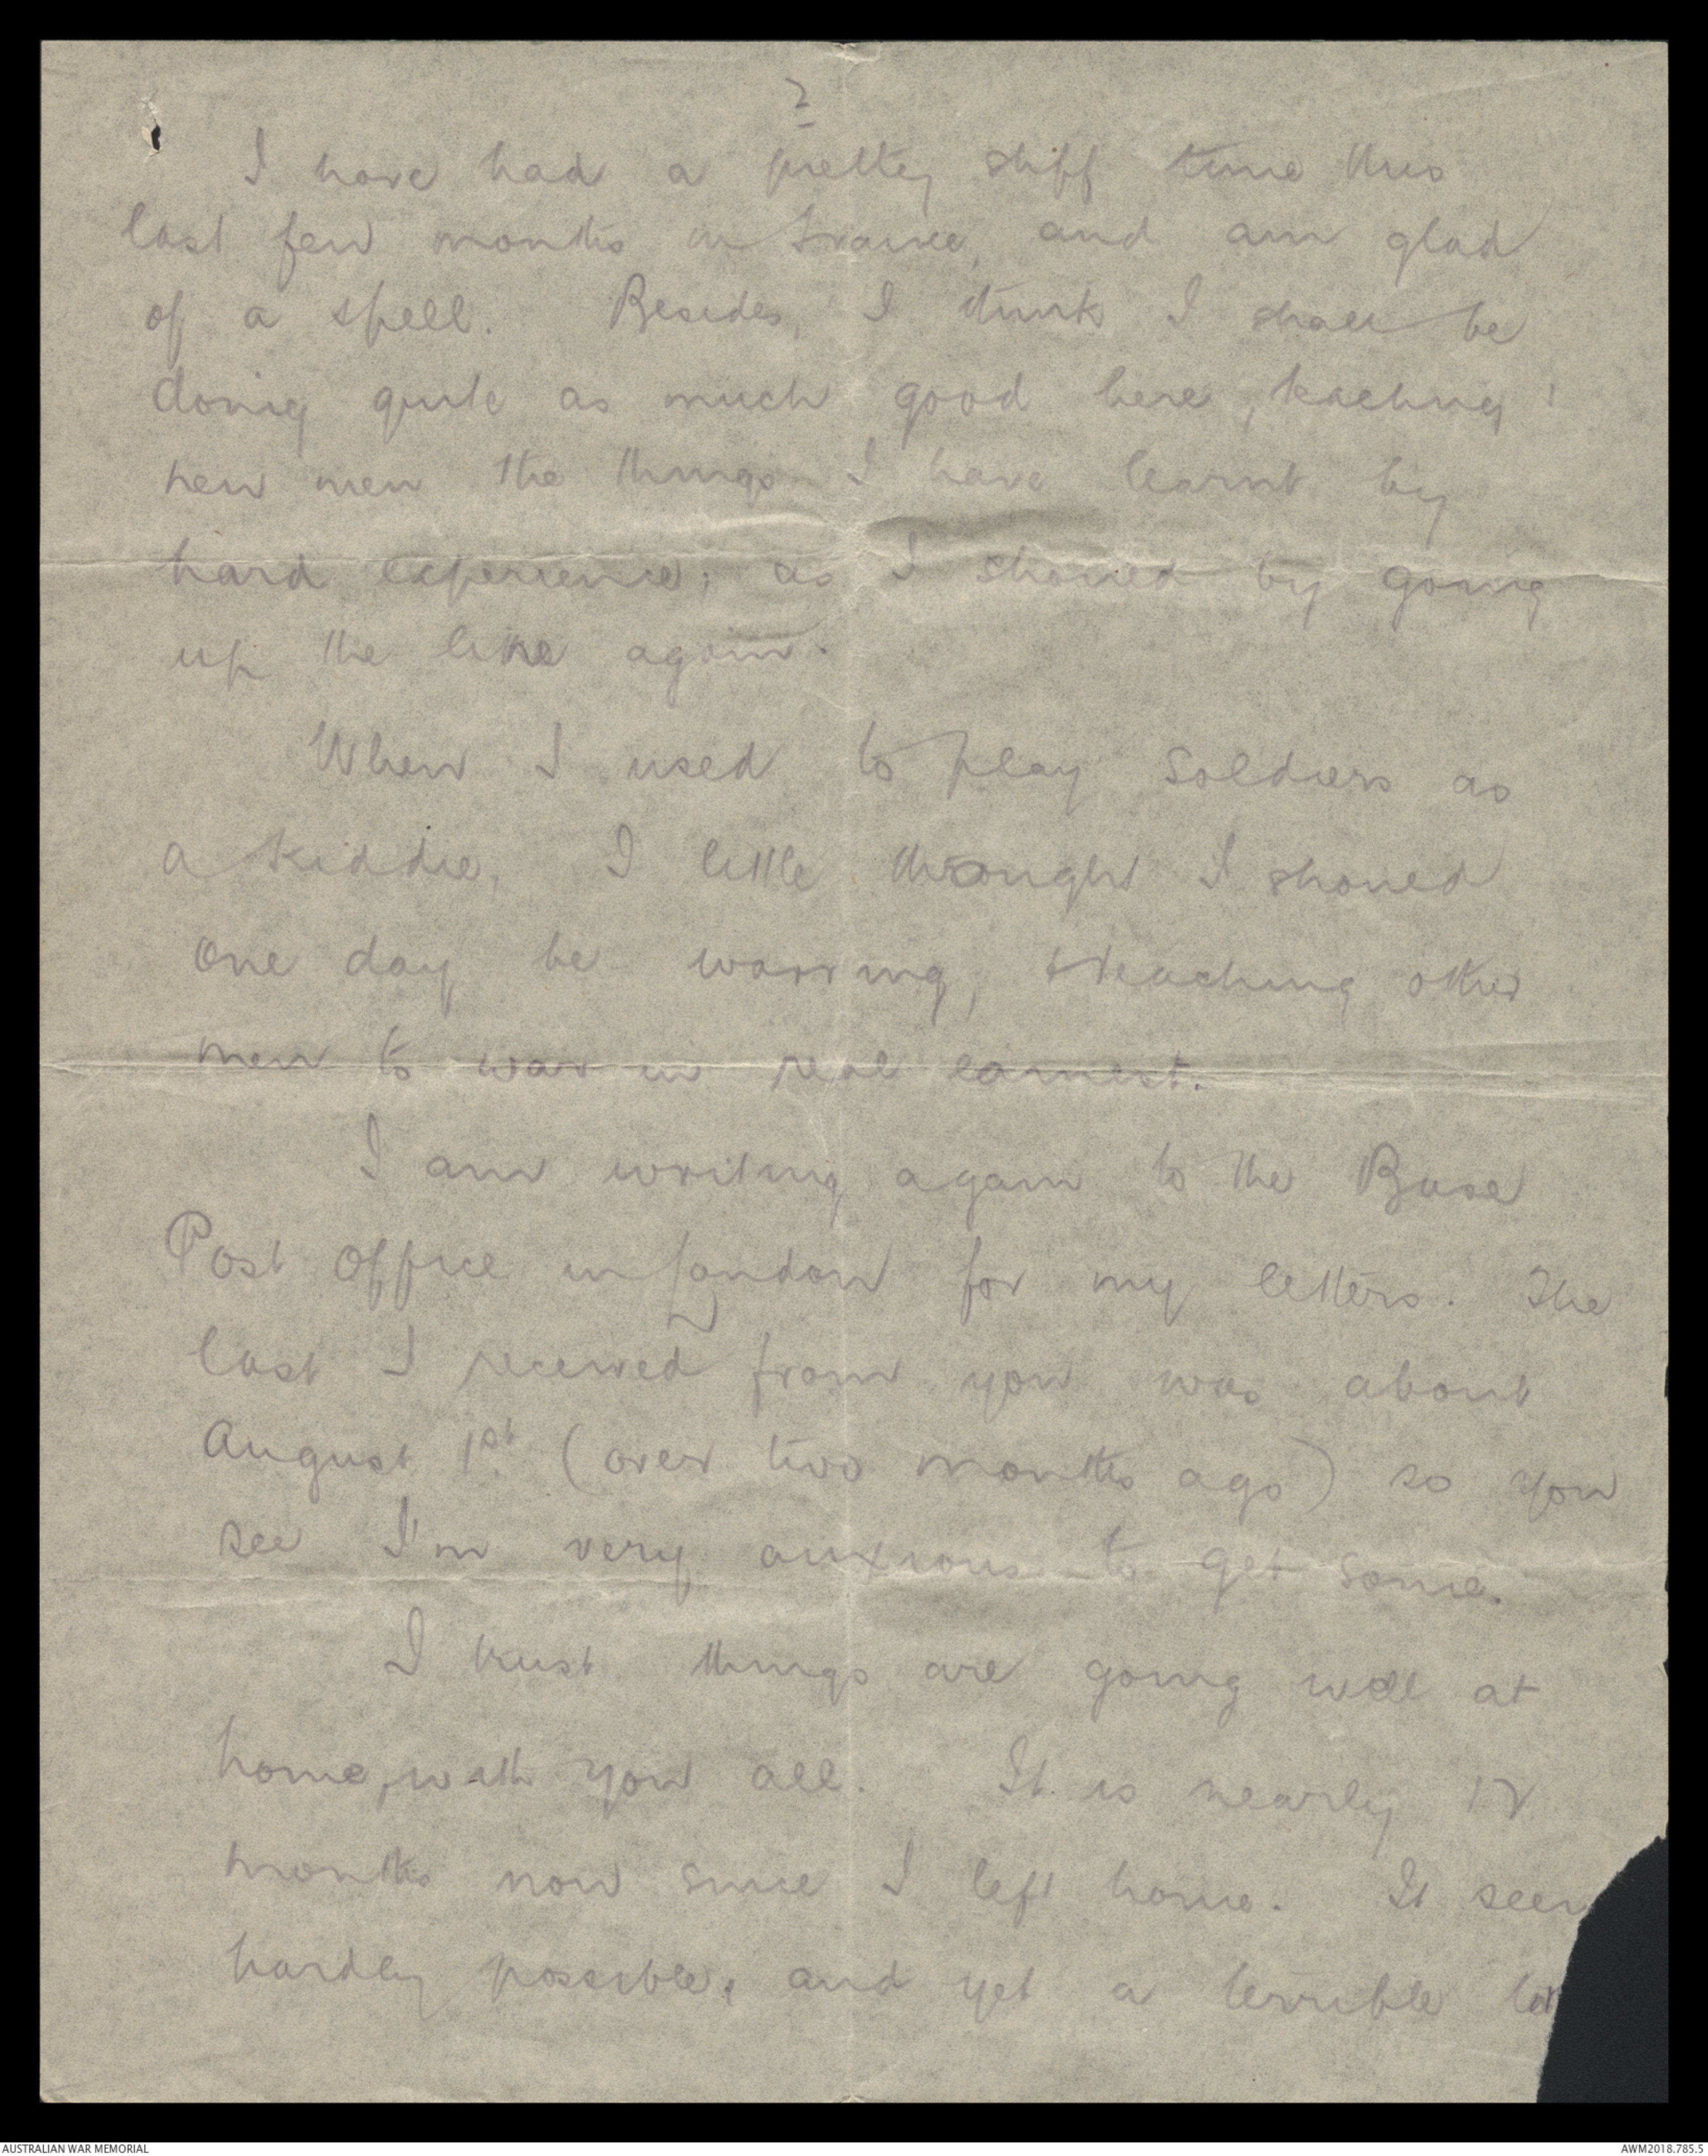 2
I have had a pretty stiff time this
last few months in France, and am glad
of a spell. Besides, I think I shall be
doing quite as much good here, teaching
new men the things I have learnt by
hard experience; as I should by going
up the line again.
When I used to play soldiers as
a kiddie, I little thought I should
one day be warring, teaching other
men to war in real earnest.
I am writing again to the Base
Post Office in London for my letters. The
last I received from you was about
August 1st (over two months ago) so you
see I'm very anxious to get some.
I trust things are going well at
home, with you all. It is nearly 12
months now since I left home. It seem
hardly possible, and yet a terrible lot
AUSTRALIAN WAR MEMORIAL
AWM2018.785.5